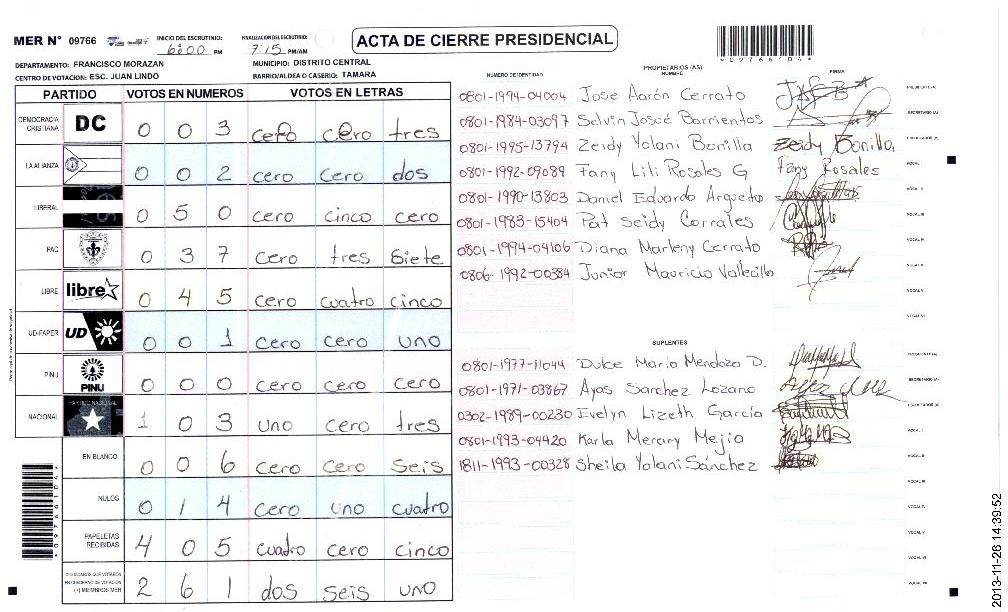 MER N° 09766 INICIO DEL ESCRUTINIO: 6:00 PM FINALIZACION DEL ESCRUTINIO: 7:15 PM/AM
ACTA DE CIERRE PRESIDENCIAL
*09766104*
DEPARTAMENTO: FRANCISCO MORAZAN MUNICIPIO: DISTRITO CENTRAL
CENTRO DE VOTACION: ESC. JUAN LINDO BARRIO/ALDEA O CASERIO: TAMARA
PARTIDO VOTOS EN NUMEROS VOTOS EN LETRAS
DEMOCRACIA CRISTIANA DC 0 0 3 cero cero tres
LA ALIANZA 0 0 2 cero cero dos
LIBERAL 0 5 0 cero cinco cero
PAC 0 3 7 cero tres siete
LIBRE libre 0 4 5 cero cuatro cinco
UD-FAPER UD 0 0 1 cero cero uno
PINU PINU 0 0 0 cero cero cero
NACIONAL 1 0 3 uno cero tres
EN BLANCO 0 0 6 cero cero seis
NULOS 0 1 4 cero uno cuatro
PAPELETAS RECIBIDAS 4 0 5 cuatro cero cinco
CIUDADANOS QUE VOTARON EN CUADERNO DE VOTACION (+) MIEMBROS MER 2 6 1 dos seis uno
NUMERO DE IDENTIDAD PROPIETARIOS (AS) NOMBRE FIRMA
0801-1994-04004 Jose Aarón Cerrato PRESIDENTE (A)
0801-1984-03097 Selvin Josué Barrientos SECRETARIO (A)
0801-1995-13794 Zeidy Yolani Bonilla Zeidy Bonilla
0801-1992-09089 Fany Lili Rosales G Fany Rosales VOCAL I
0801-1990-13803 Daniel Eduardo Argueta VOCAL II
0801-1983-15404 Pat Seidy Corrales VOCAL III
0801-1994-04106 Diana Marleny Cerrato VOCAL IV
0806-1992-00384 Junior Mauricio Vallecillo VOCAL V
VOCAL VI
SUPLENTES
0801-1977-11044 Dulce Maria Mendoza D. PRESIDENTE (A)
0801-1971-03867 Ayas Sanchez Lozano SECRETARIO (A)
0302-1989-00230 Evelyn Lizeth García
0801-1993-04420 Karla Merary Mejia VOCAL I
1811-1993-00328 Sheila Yolani Sánchez VOCAL II
VOCAL III
VOCAL IV
VOCAL V
VOCAL VI
VOCAL VII
*09766104*
2013-11-26 14:39:52